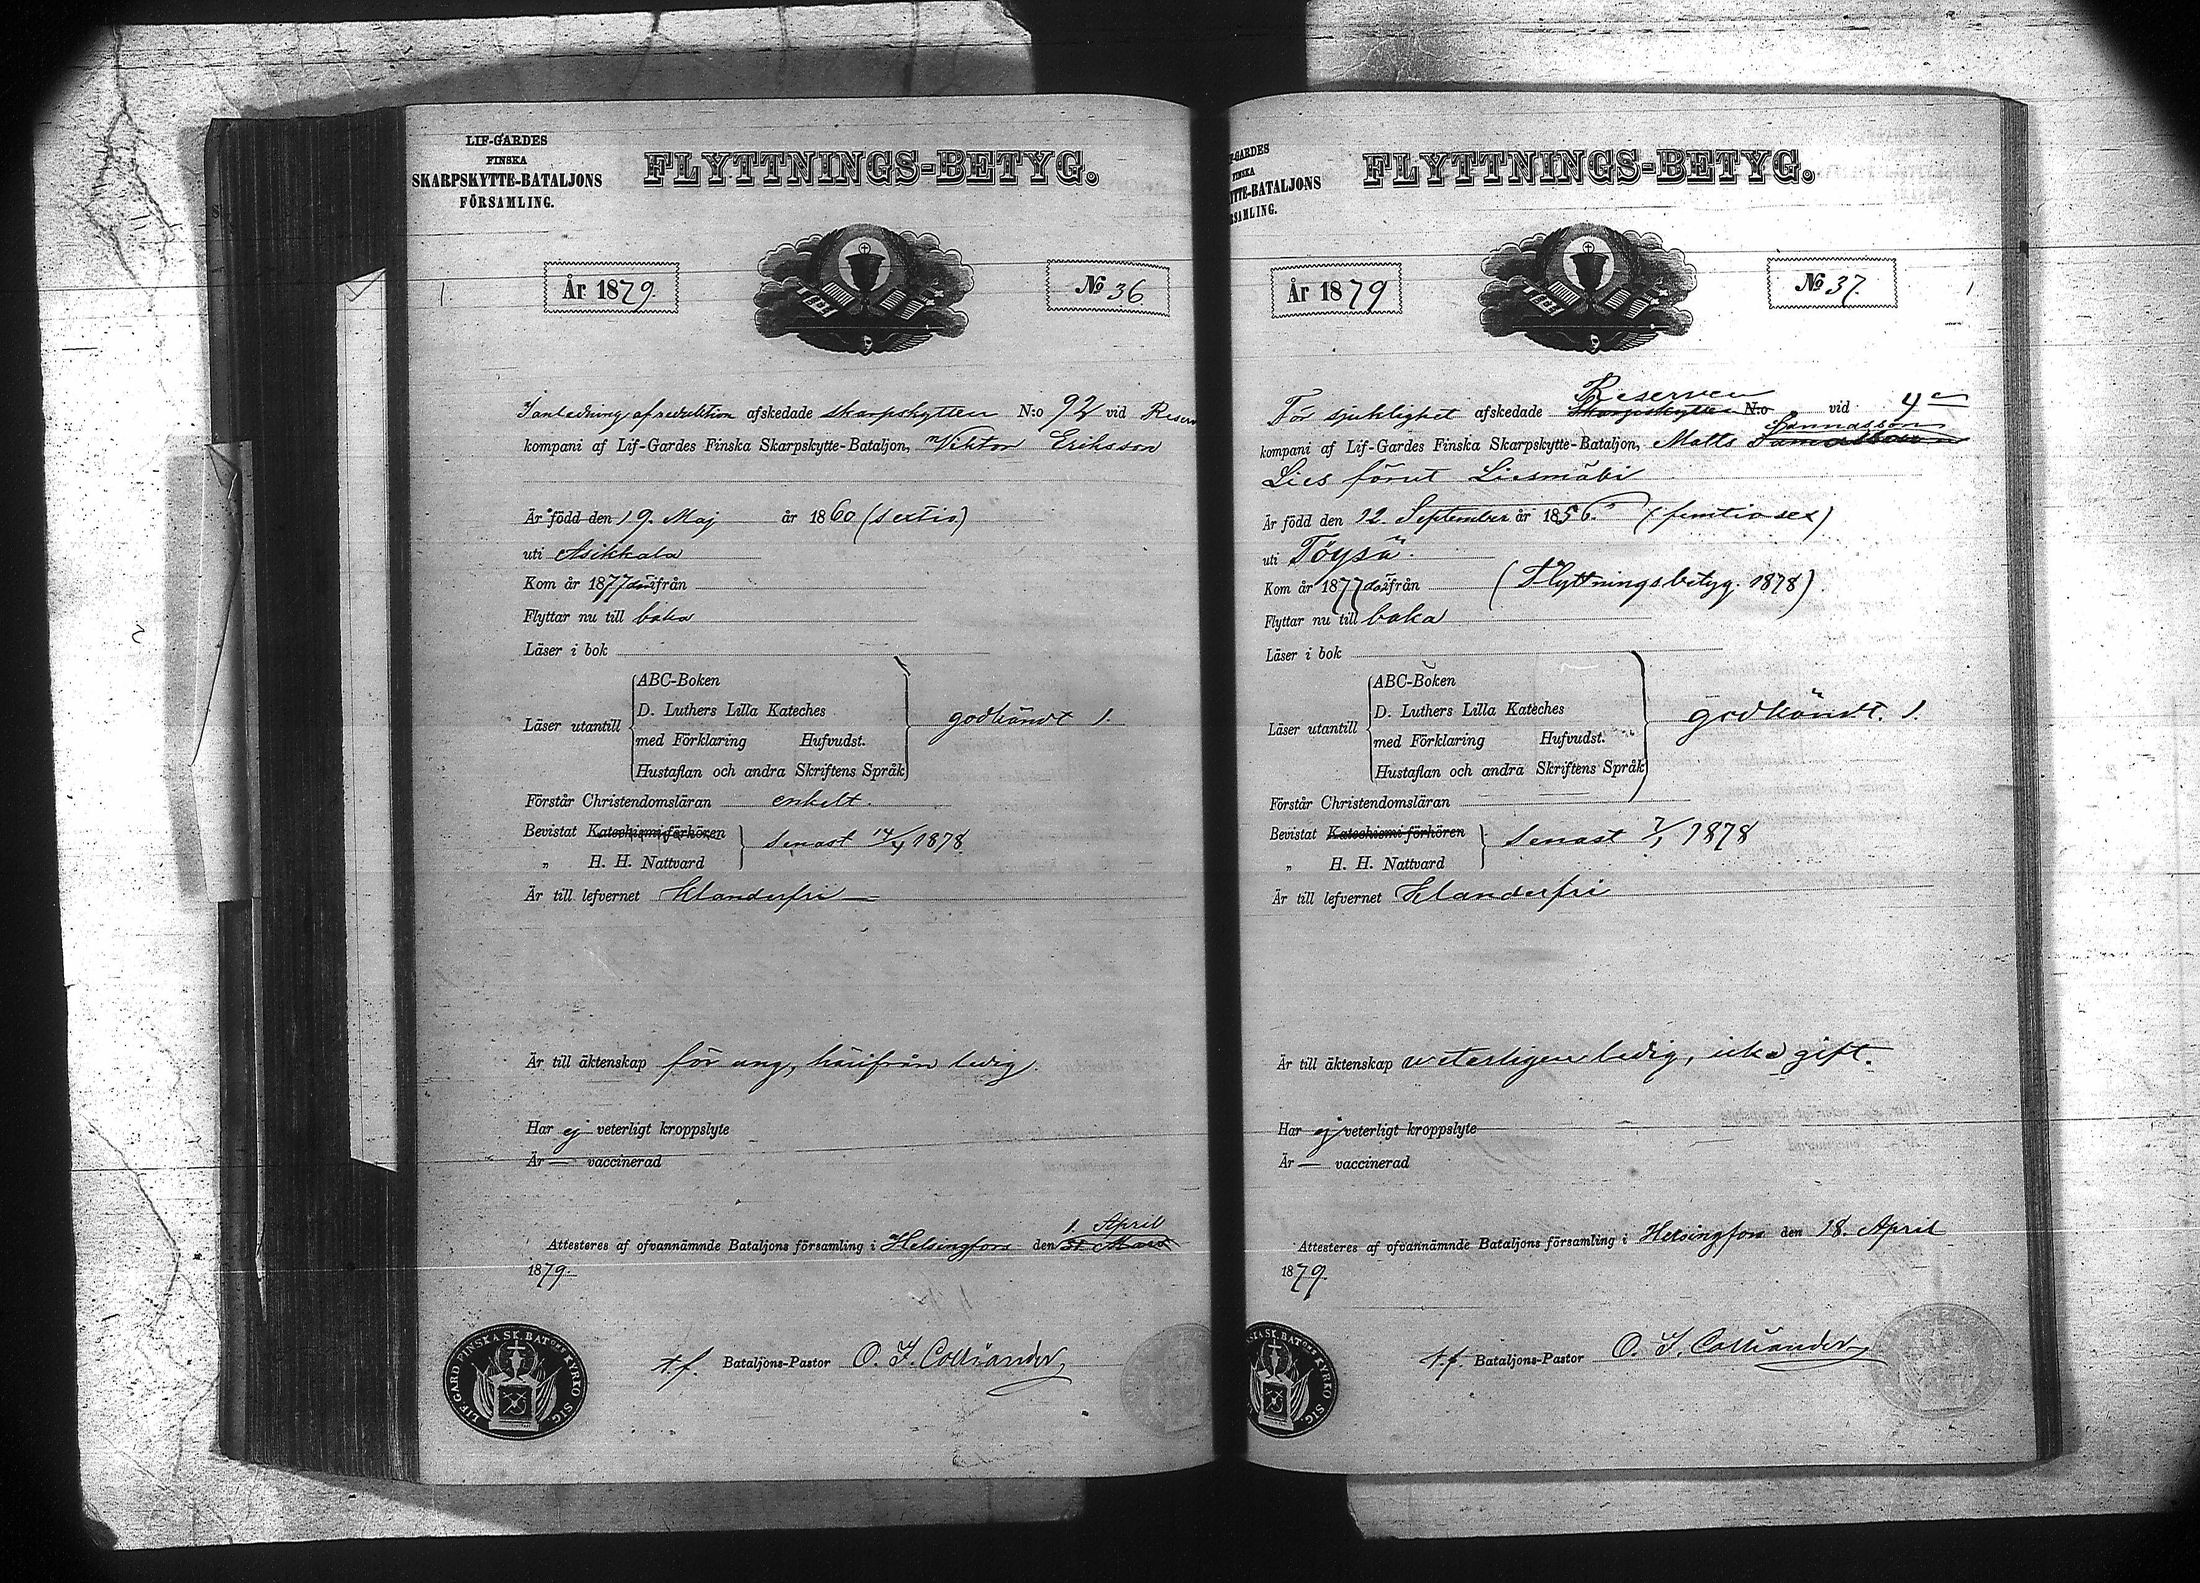 LIF-GARDES
FINSKA
SKARPSKYTTE-BATALJONS
FÖRSAMLING.
FLYTTNINGS-BETYG.
År 1879.
No 36
afskedade skarpskytten N:o 92 vid Reserv
kompani af Lif-Gardes Finska Skarpskytte-Bataljon, Viktor Eriksson
Är född den 19. Maj år 1860 (sextio)
uti Asikkala
Kom år 1877 därifrån
Flyttar nu till baka
Läser i bok
Läser utantill
ABC-Boken
D. Luthers Lilla Kateches
med Förklaring Hufvudst.
Hustaflan och andra Skriftens Språk
godkändt 1.
Förstår Christendomsläran enkelt.
Bevistat Katechismiförhören
„ H. H. Nattvard
senast 14/4 1878
Är till lefvernet klanderfri
Är till äktenskap för ung, härifrån ledig.
Har ej veterligt kroppslyte
Är — vaccinerad
1. April
Attesteres af ofvannämnde Bataljons församling i Helsingfors den 31 Mars
1879.
t.f. Bataljons-Pastor O. I. Colliander
LIF.GARD.FINSKA SK.BAT:ONS KYRKO SIG.
-GARDES
FINSKA
TTE-BATALJONS
RSAMLING.
FLYTTNINGS-BETYG.
År 1879
No 37.
Reserven
För sjuklighet afskedade Skarpskytten N:o vid 4de
Sannasson
kompani af Lif-Gardes Finska Skarpskytte-Bataljon, Matts
Lies förut Liesmäki
Är född den 12. September år 1856. (femtiosex)
uti Töysä.
Kom år 1877 därifrån (Flyttningsbetyg. 1878).
Flyttar nu till baka
Läser i bok
Läser utantill
ABC-Boken
D. Luthers Lilla Kateches
med Förklaring Hufvudst.
Hustaflan och andra Skriftens Språk
godkändt. 1.
Förstår Christendomsläran
Bevistat Katechismi förhören
„ H. H. Nattvard
senast 7/1 1878
Är till lefvernet klanderfri
Är till äktenskap veterligen ledig, icke gift.
Har ej veterligt kroppslyte
Är — vaccinerad
Attesteres af ofvannämnde Bataljons församling i Helsingfors den 18. April
1879.
t.f. Bataljons-Pastor O. I. Colliander
SKA SK.BAT:ONS KYRKO SIG.